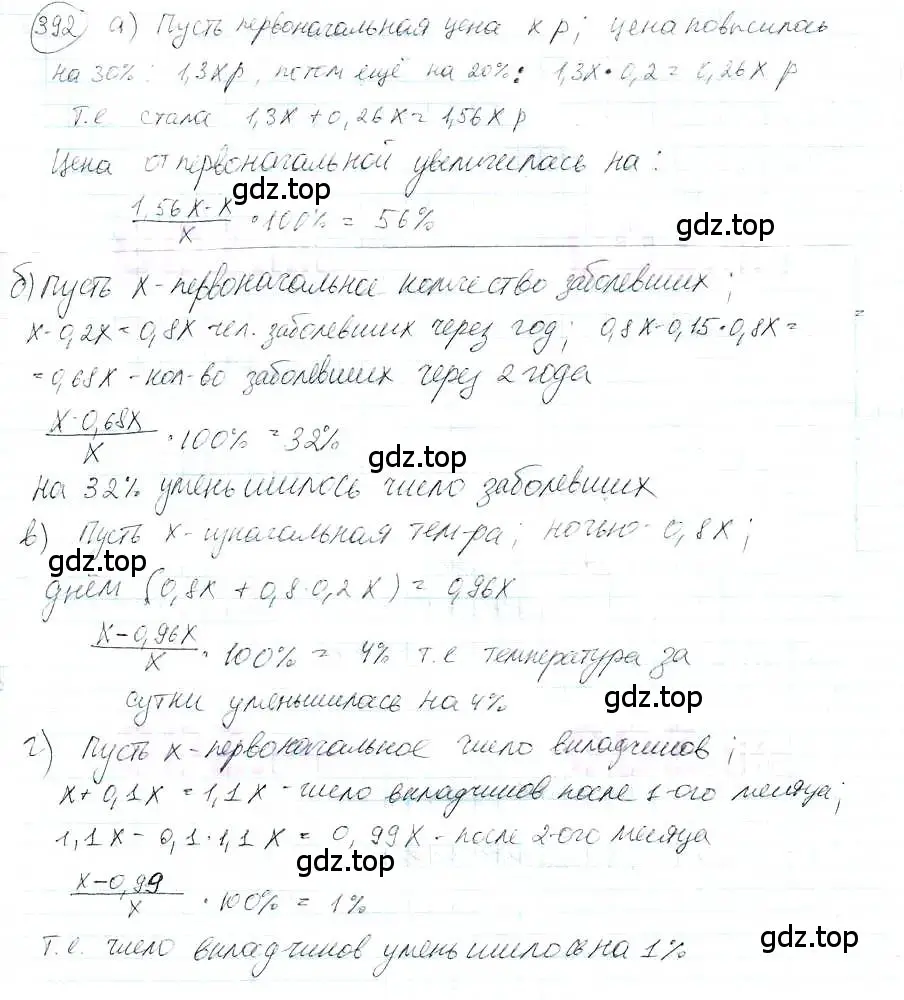 392 а) Пусть первоначальная цена x р; цена повысилась
на 30%: 1,3x р, потом ещё на 20%: 1,3x · 0,2 = 0,26x р
Т.е стала 1,3x + 0,26x = 1,56x р
Цена от первоначальной увеличилась на:
gdz.top
(1,56x - x)/x · 100% = 56%
gdz.top
б) Пусть x - первоначальное количество заболевших;
x - 0,2x = 0,8x чел. заболевших через год; 0,8x - 0,15 · 0,8x =
= 0,68x - кол-во заболевших через 2 года
(x - 0,68x)/x · 100% = 32%
gdz.top
на 32% уменьшилось число заболевших
в) Пусть x - изначальная тем-ра; ночью - 0,8x;
gdz.top
днём (0,8x + 0,8 · 0,2x) = 0,96x
(x - 0,96x)/x · 100% = 4% т.е температура за
сутки уменьшилась на 4%
gdz.top
г) Пусть x - первоначальное число вкладчиков;
x + 0,1x = 1,1x - число вкладчиков после 1-ого месяца;
1,1x - 0,1 · 1,1x = 0,99x - после 2-ого месяца
gdz.top
(x - 0,99)/x · 100% = 1%
gdz.top
Т.е. число вкладчиков уменьшилось на 1%